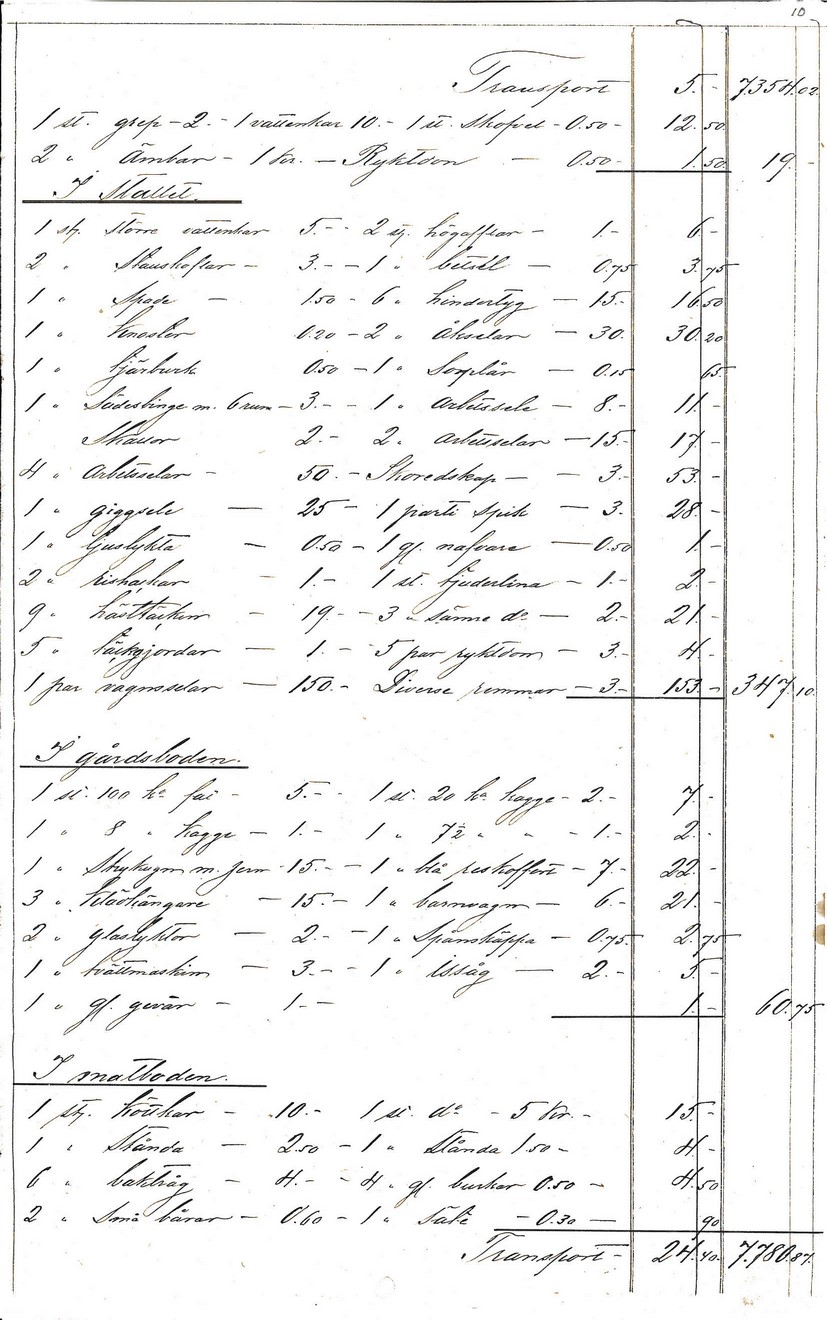 10
Transport 5.- 7354.02
1 st. grep - 2.- 1 vattenkar 10.- 1 st. Skofvel - 0.50 - 12.50
2 " Ämbar - 1 Kr. - Ryktdon - 0.50 - 1.50 19.-
I Stallet.
1 st. större vattenkar 5.- - 2 st. högafflar - 1.- 6.-
2 " - 3.- - 1 " betsel - 0.75 3.75
1 " Spade - 1.50 - 6 " hindertyg - 15.- 16.50
1 " 0.20 - 2 " åkselar - 30. 30.20
1 " tjärburk 0.50 - 1 " - 0.15 65
1 " Sädesbinge m. 6 rum - 3.- - 1 " arbetssele - 8.- 11.-
2.- 2 " arbetsselar - 15.- 17.-
4 " arbetsselar - 50.- Skoredskap - - 3.- 53.-
1 " giggsele - 25 - 1 parti spik - 3.- 28.-
1 " ljuslykta - 0.50 - 1 gl. nafvare - 0.50 1.-
2 " - 1.- 1 st. tjuderlina - 1.- 2.-
9 " hästtäcken - 19.- - 3 " sämre do - 2.- 21.-
5 " täckgjordar - 1.- - 5 par ryktdon - 3.- 4.-
1 par vagnsselar - 150.- Diverse remmar - 3.- 153.- 347.10
I gårdsboden.
1 st. 100 ka fat - 5.- 1 st. 20 ka kagge - 2.- 7.-
1 " 8 " kagge - 1.- 1 " 7½ " " - 1.- 2.-
1 " Strykugn m. jern - 15.- - 1 " blå reskoffert - 7.- 22.-
3 " klädhängare - 15.- - 1 " barnvagn - 6.- 21.-
2 " glaslyktor - 2.- - 1 " Spånskäppa - 0.75 2.75
1 " tvättmaskin - 3.- - 1 " issåg - 2.- 5.-
1 " gl. gevär - 1.- 1.- 60.75
I matboden.
1 st. köttkar - 10.- 1 st. do - 5 Kr. - 15.-
1 " Stånda - 2.50 - 1 " Stånda 1.50 - 4.-
6 " baktråg - 4.- - 4 gl. burkar 0.50 - 4.50
2 " små bårar - 0.60 - 1 " - 0.30 - 90
Transport - 24.40 7.780.87